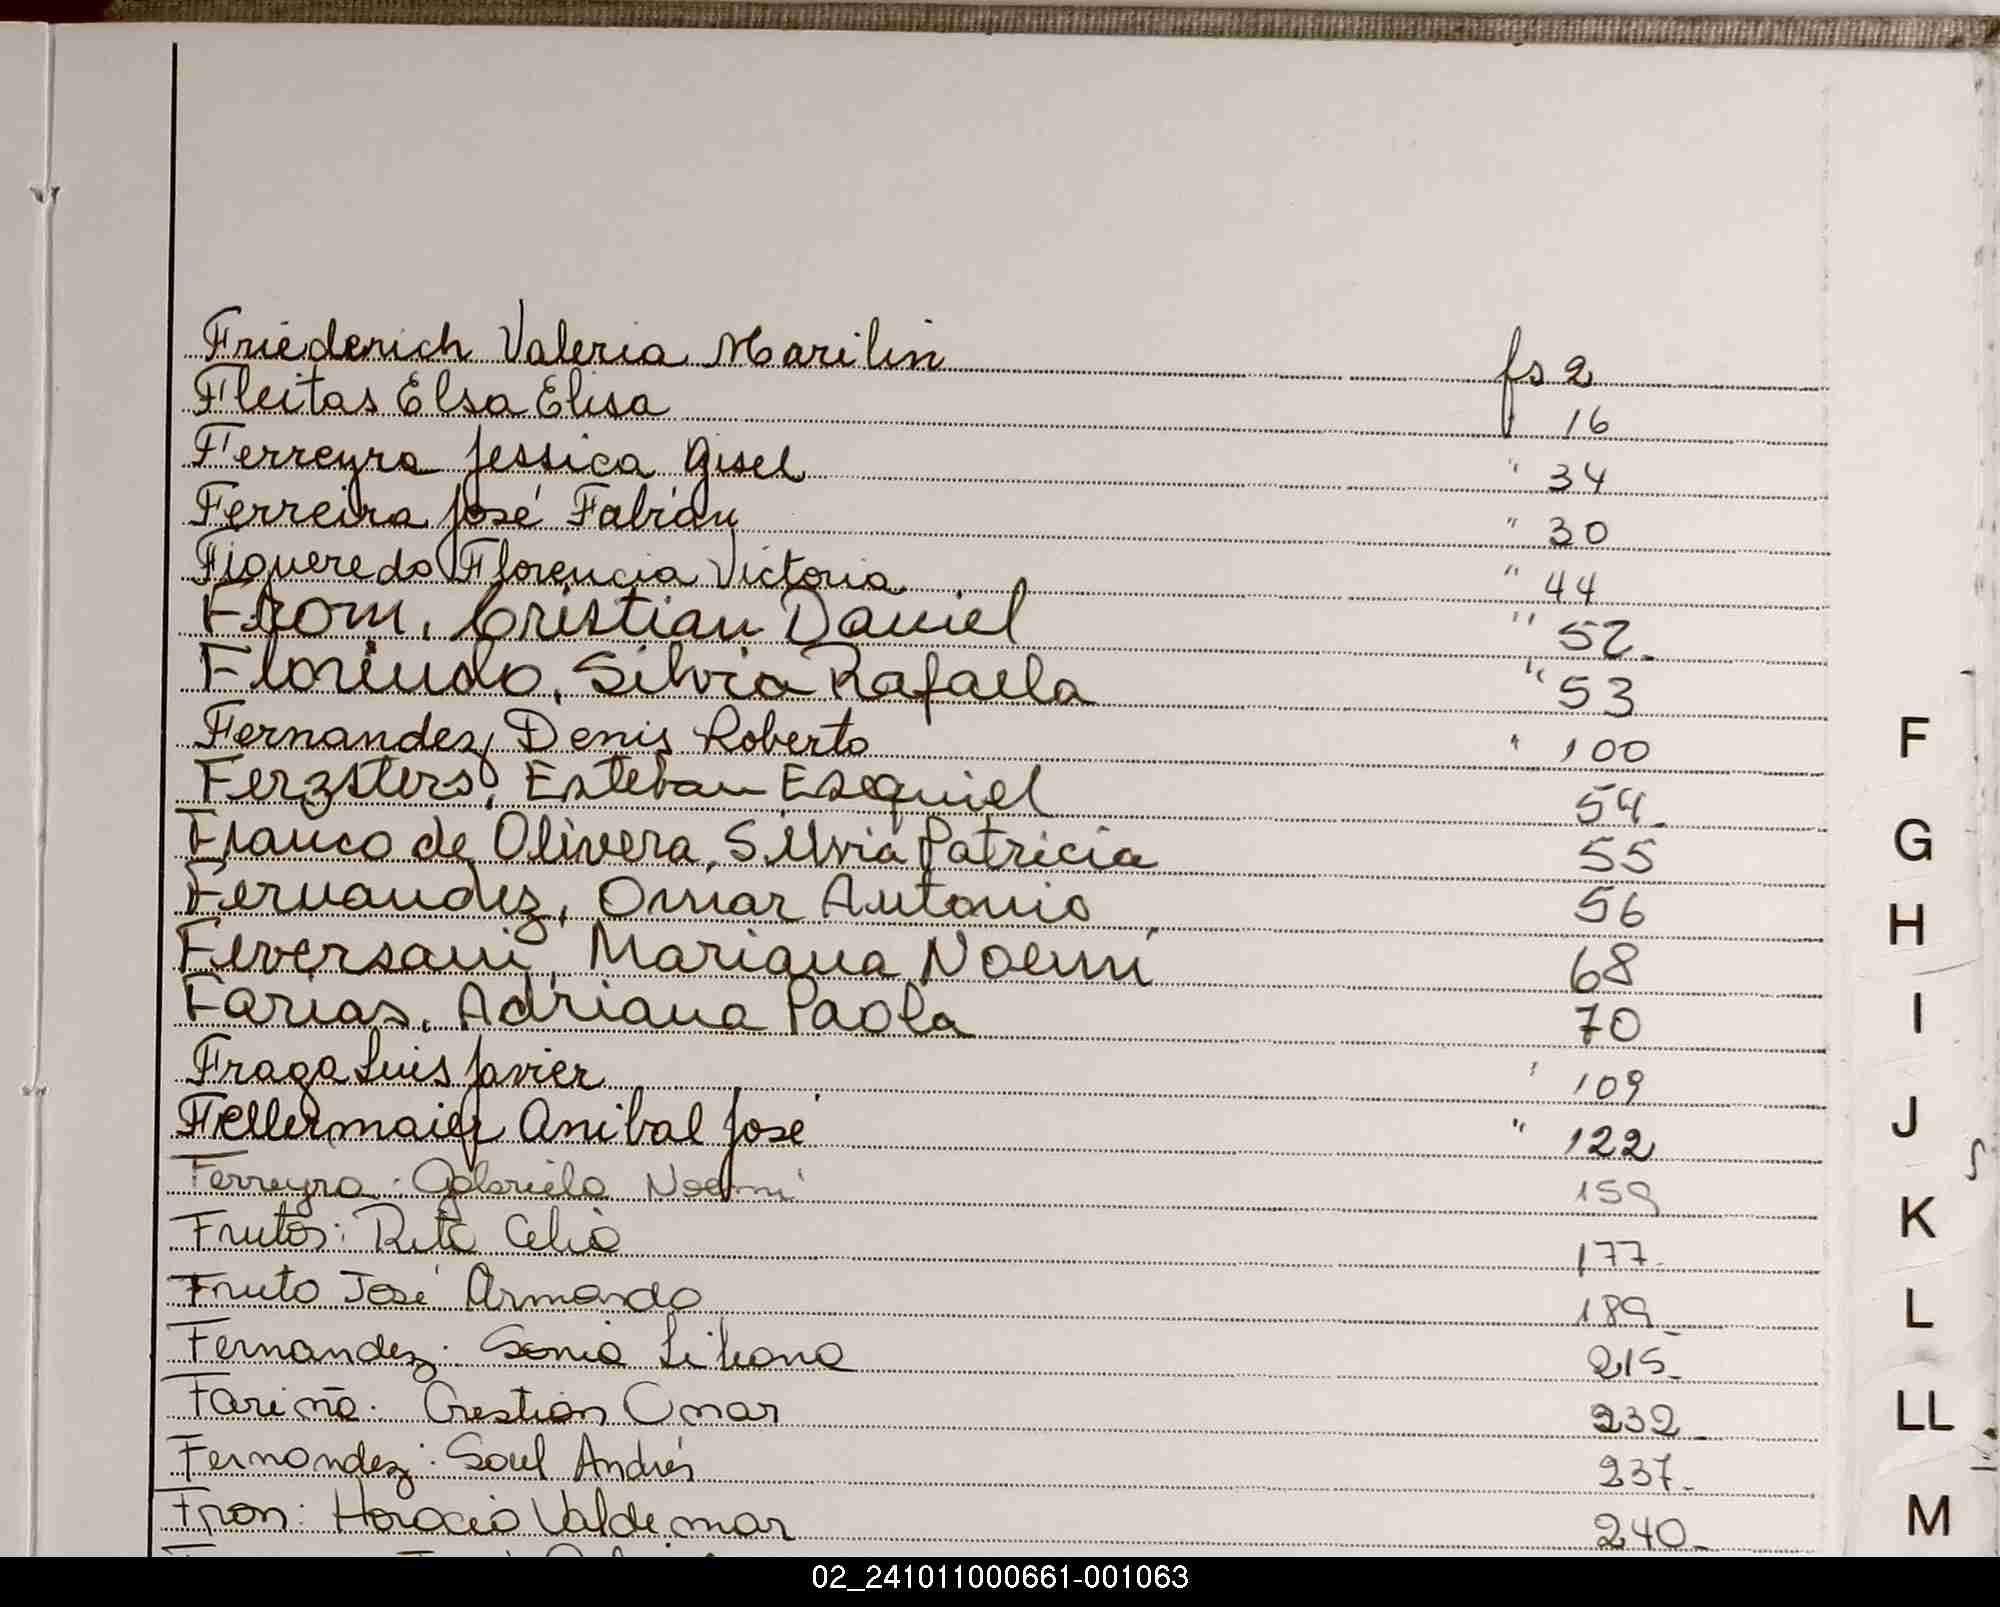 Friederich Valeria Marilin fs 2
Fleitas Elsa Elisa " 16
Ferreyra Jessica Gisel " 34
Ferreira José Fabián " 30
Figueredo Florencia Victoria " 44
From, Cristian Daniel " 52.
Florindo, Silvia Rafaela " 53
Fernandez, Denis Roberto " 100
Ferzsters, Esteban Esequiel 54.
Franco de Olivera, Silvia Patricia 55
Fernandez, Omar Antonio 56
Feversani, Mariana Noemí 68
Farias, Adriana Paola 70
Fraga Luis Javier " 109
Fellermaier Anibal José " 122
Ferreyra: Gabriela Noemí 159
Frutos: Rita Celia 177.
Fruto José Armando 189
Fernandez: Sonia Liliana 215.
Fariña: Crestian Omar 232.
Fernandez: Saul Andrés 237.
Fron: Horacio Valdemar 240.
F
G
H
I
J
K
L
LL
M
02_241011000661-001063